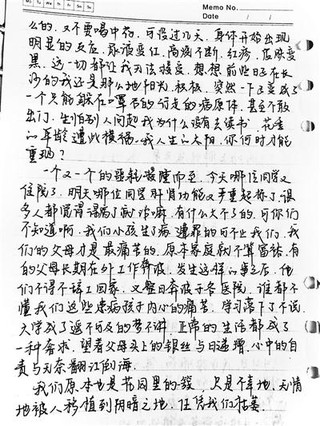 Memo No.
Date / /
么的，又不要喝中药，可没过几天，身体开始出现
明显的反应，尿液变红，高烧不断，红疹，皮肤变
黑，这一切都让我无法接受，想想前些日子在长
沙的我还是那么地阳光、积极，突然一下子变成了
一个只能躲在 苟延的病原体，甚至不敢
出门，生怕别人问起我为什么没有去读书，花季
的年龄遭此横祸，我人生的太阳，你何时才能
重现？
一个又一个的噩耗接踵而至，今天哪位同学又
住院了，明天哪位同学肝肾功能又严重超标了，很
多人都觉得得病了而已嘛，有什么大不了的，可你们
不知道啊，我们小孩生了病遭罪的可不止我们，我
们的父母才是最痛苦的，原本家庭就不算富裕，有
的父母长期在外工作奔波，发生这样的事后，他
们不得不辞工回家，又整日奔波于各医院，谁都不
懂我们这些患病孩子内心的痛苦，学习落下了不说，
大学成了遥不可及的梦不讲，正常的生活都成了
一种奢求，望着父母头上的银丝与日递增，心中的自
责与无奈翻江倒海，
我们原本也是花园里的 ，只是 ，无情
地被人移植到阴暗之地，任凭我们枯萎，